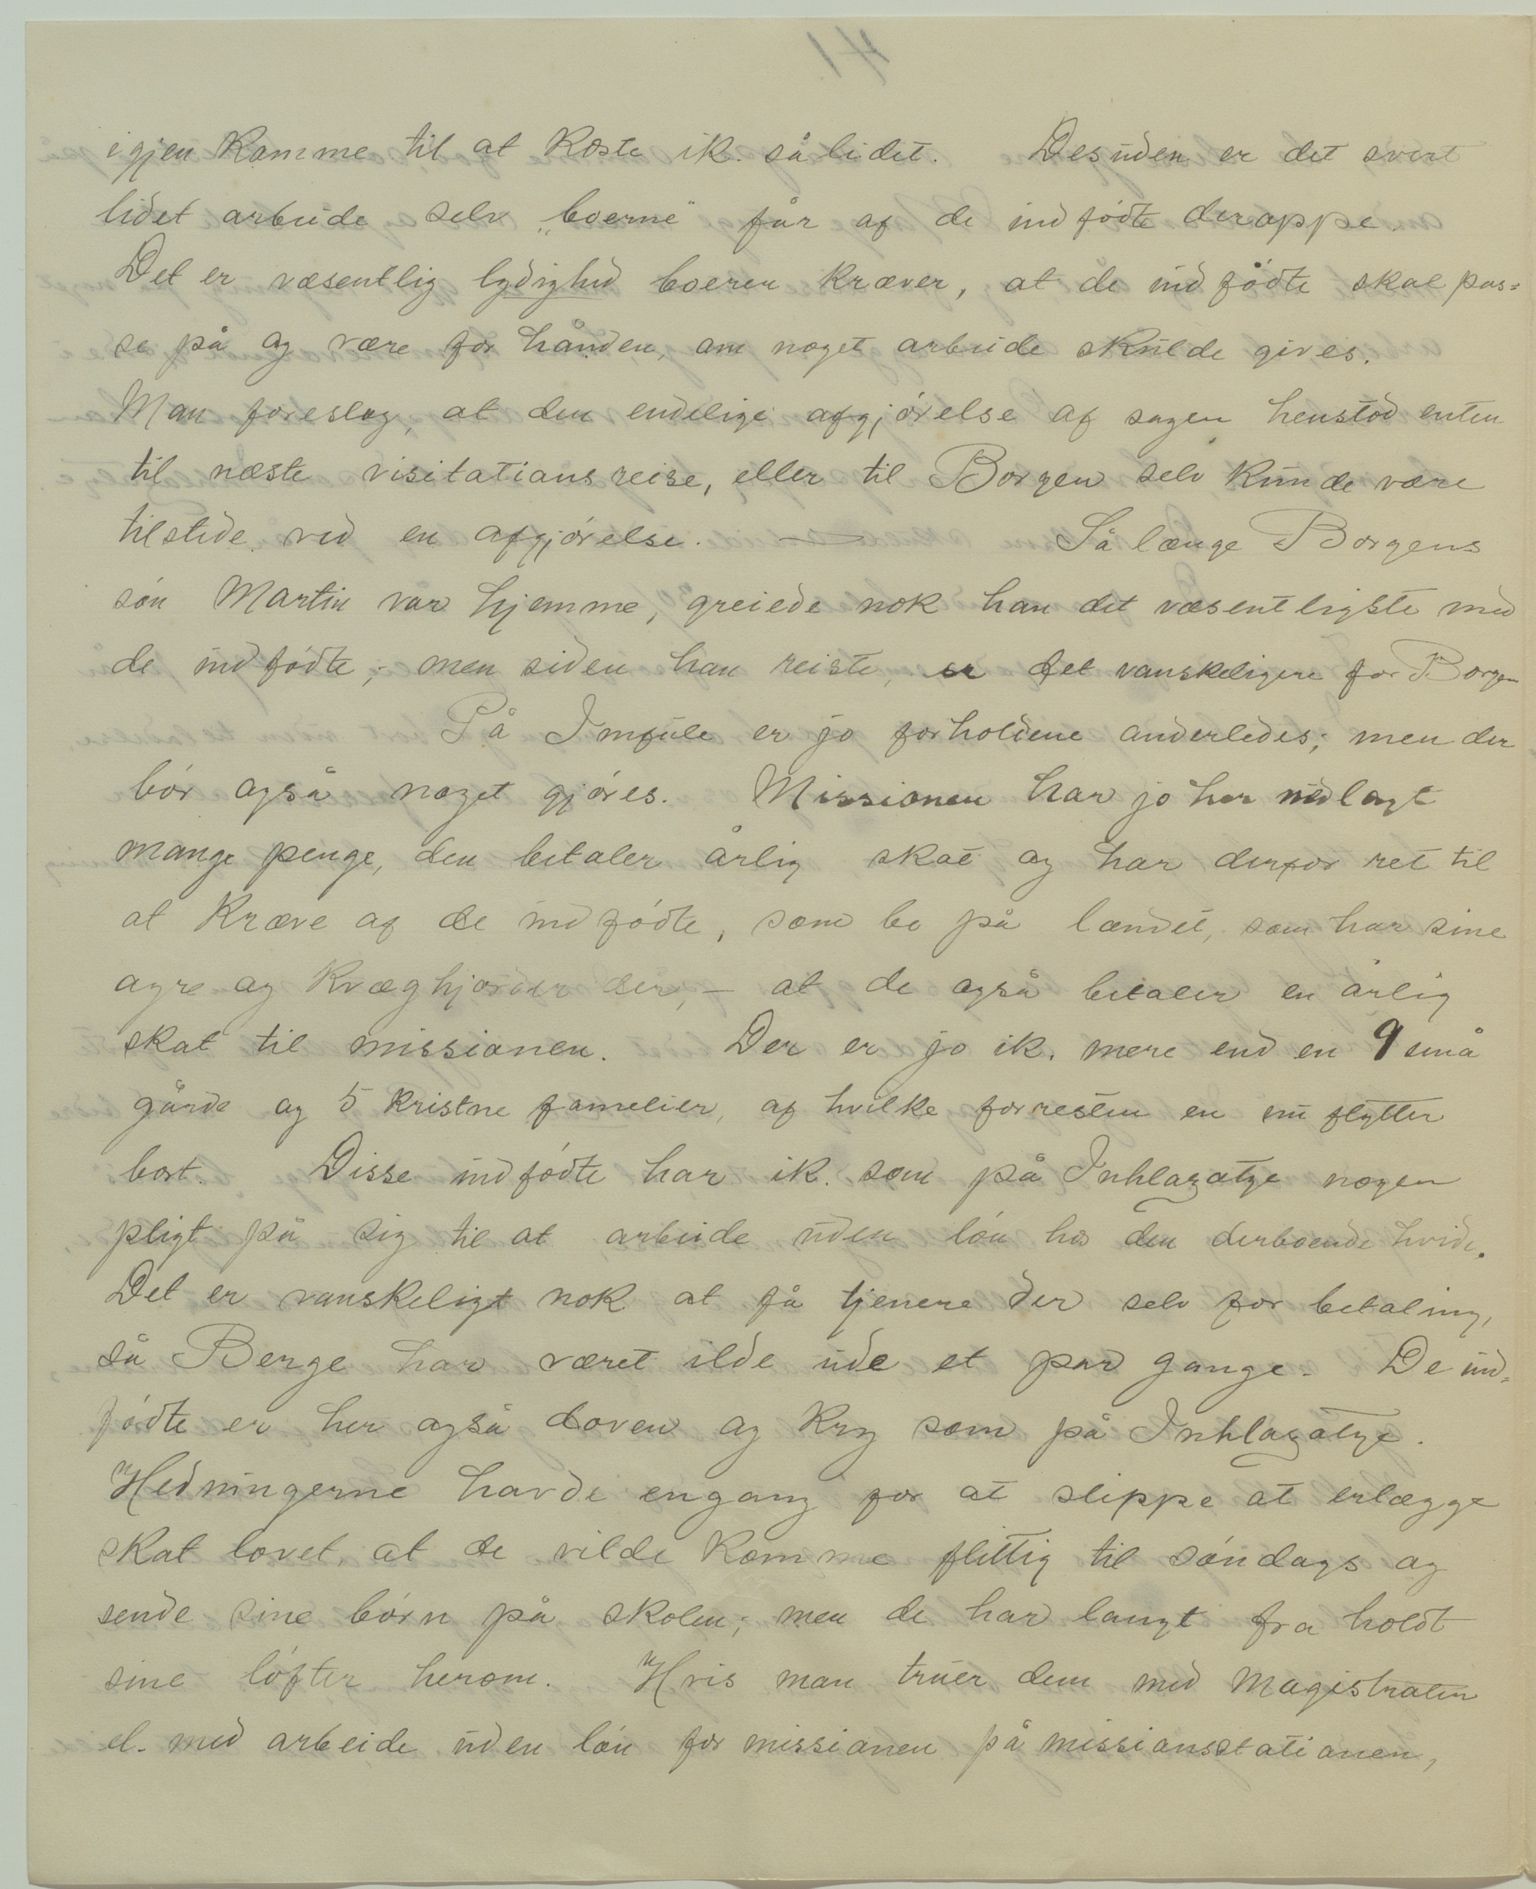 igjen komme til at koste ik. så lidet. Desuden er det svert
lidet arbeide selv „boerne" får af de indfødte deroppe.
Det er væsentlig lydighed boeren kræver, at de indfødte skal pas=
se på og være for hånden, om noget arbeide skulde gives.
Man foreslog, at den endelige afgjørelse af sagen henstod enten
til næste visitationsreise, eller til Borgen selv kunde være
tilstede ved en afgjørelse. — Så længe Borgens
søn Martin var hjemme, greiede nok han det væsentligste med
de indfødte; men siden han reiste, er det vanskeligere for Borgen
På Imfule er jo forholdene anderledes; men der
bør også noget gjøres. Missionen har jo her nedlagt
mange penge, den betaler årlig skat og har derfor ret til
at kræve af de indfødte, som bo på landet, som har sine
agre og kvæghjorder der, – at de også betaler en årlig
skat til missionen. Der er jo ik. mere end en 9 små
gårde og 5 kristne familier, af hvilke forresten en nu flytter
bort. Disse indfødte har ik. som på Inhlazatye nogen
pligt på sig til at arbeide uden løn hos den derboende hvide.
Det er vanskeligt nok at få tjenere der selv for betaling,
så Berge har været ilde ude et par gange. De ind=
fødte er her også doven og kry som på Inhlazatye.
Hedningerne havde engang for at slippe at erlægge
skat lovet, at de vilde komme flittig til søndags og
sende sine børn på skolen; men de har langt fra holdt
sine løfter herom. Hvis man truer dem med Magistraten
el. med arbeide uden løn for missionen på missionsstationen,